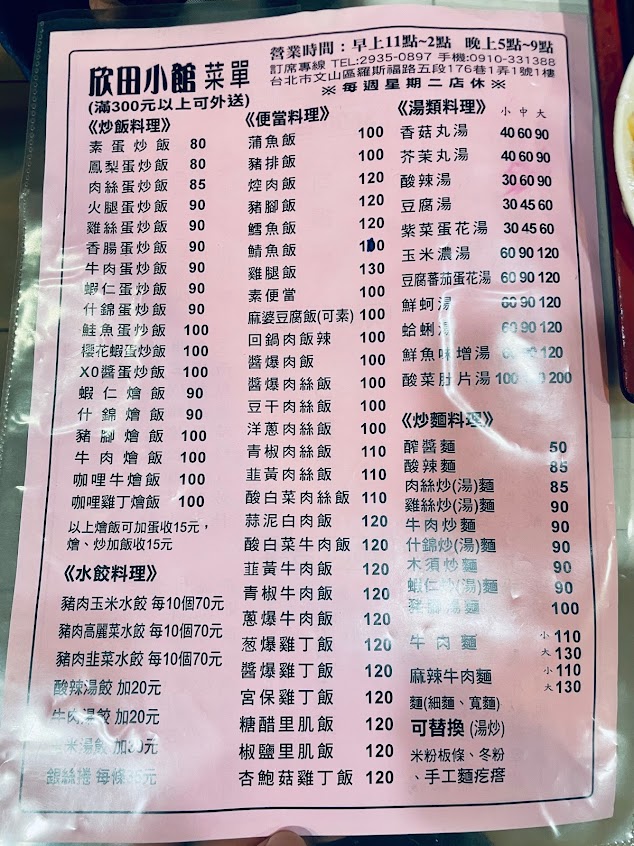 欣田小館 菜單
(滿300元以上可外送)
營業時間：早上11點~2點 晚上5點~9點
訂席專線 TEL:2935-0897 手機:0910-331388
台北市文山區羅斯福路五段176巷1弄1號1樓
※ 每週星期二店休※
《炒飯料理》
素蛋炒飯 80
鳳梨蛋炒飯 80
肉絲蛋炒飯 85
火腿蛋炒飯 90
雞絲蛋炒飯 90
香腸蛋炒飯 90
牛肉蛋炒飯 90
蝦仁蛋炒飯 90
什錦蛋炒飯 90
鮭魚蛋炒飯 100
櫻花蝦蛋炒飯 100
XO醬蛋炒飯 100
蝦仁燴飯 90
什錦燴飯 90
豬腳燴飯 100
牛肉燴飯 100
咖哩牛燴飯 100
咖哩雞丁燴飯 100
以上燴飯可加蛋收15元，
燴、炒加飯收15元
《水餃料理》
豬肉玉米水餃 每10個70元
豬肉高麗菜水餃 每10個70元
豬肉韭菜水餃 每10個70元
酸辣湯餃 加20元
牛肉湯餃 加20元
米湯餃 加30元
銀絲捲 每條35元
《便當料理》
蒲魚飯 100
豬排飯 100
焢肉飯 120
豬腳飯 120
鱈魚飯 120
鯖魚飯
雞腿飯 130
素便當 100
麻婆豆腐飯(可素) 100
回鍋肉飯辣 100
醬爆肉飯 100
醬爆肉絲飯 100
豆干肉絲飯 100
洋蔥肉絲飯 100
青椒肉絲飯 110
韮黃肉絲飯 110
酸白菜肉絲飯 110
蒜泥白肉飯 120
酸白菜牛肉飯 120
韮黃牛肉飯 120
青椒牛肉飯 120
蔥爆牛肉飯 120
葱爆雞丁飯 120
醬爆雞丁飯 120
宮保雞丁飯 120
糖醋里肌飯 120
椒鹽里肌飯 120
杏鮑菇雞丁飯 120
《湯類料理》 小 中 大
香菇丸湯 40 60 90
芥茉丸湯 40 60 90
酸辣湯 30 60 90
豆腐湯 30 45 60
紫菜蛋花湯 30 45 60
玉米濃湯 60 90 120
豆腐蕃茄蛋花湯 60 90 120
鮮蚵湯 60 90 120
蛤蜊湯 60 90 120
鮮魚味增湯 60 90 120
酸菜肚片湯 100 200
《炒麵料理》
醡醬麵 50
酸辣麵 85
肉絲炒(湯)麵 85
雞絲炒(湯)麵 90
牛肉炒麵 90
什錦炒(湯)麵 90
木須炒麵 90
蝦仁炒(湯)麵 90
豬腳湯麵 100
牛肉麵 小 110
大 130
麻辣牛肉麵 小 110
大 130
麵(細麵、寬麵)
可替換 (湯炒)
米粉板條、冬粉
、手工麵疙瘩